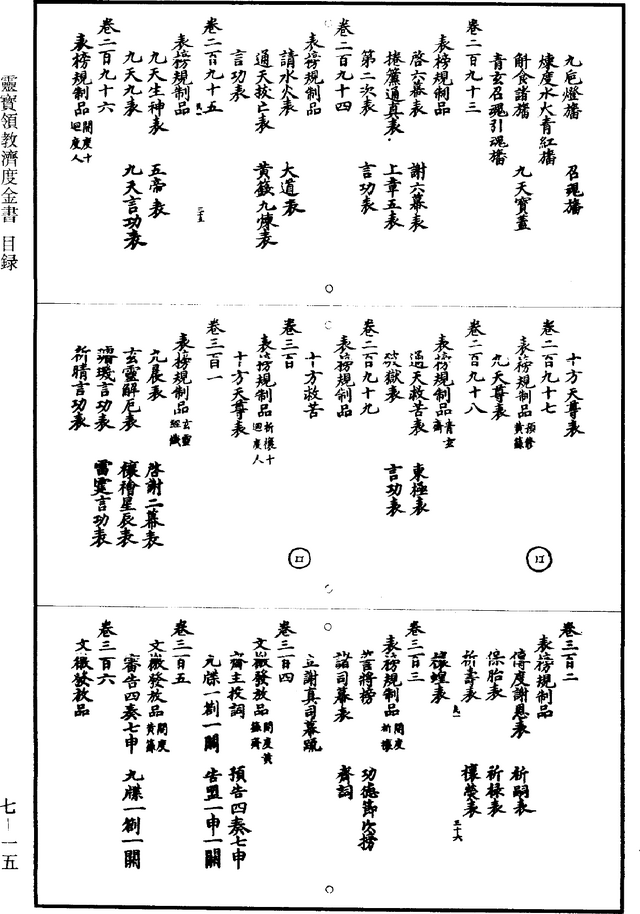 九巵燈旛　召魂旛
煉度水火青紅旛
斛食諸旛　九天寶蓋
青玄召魂引魂旛
卷二百九十三
表榜規制品
啓六幕表　謝六幕表
捲簾通真表　上章五表
第二次表　言功表
卷二百九十四
表榜規制品
請水火表　大道表
通天拔亡表　黃籙九煉表
言功表
卷二百九十五
表榜規制品
九天生神表　五帝表
九天九表　九天言功表
卷二百九十六
表榜規制品 開度十迴度人
十方天尊表
卷二百九十七
表榜規制品 預修黃籙
九天尊表
卷二百九十八
表榜規制品 青玄齋
通天救苦表　東極表
破獄表　言功表
卷二百九十九
表榜規制品
十方救苦
卷三百
表榜規制品 祈禳十迴度人
十方天尊表
卷三百一
表榜規制品 玄靈經懺
九晨表　啓謝二幕表
玄靈解厄表　禳禬星辰表
璿璣言功表　雷霆言功表
祈晴言功表
卷三百二
表榜規制品
傳度謝恩表　祈嗣表
保胎表　祈祿表
祈壽表　禳熒表
禳蝗表
卷三百三
表榜規制品 開度祈禳
莒將榜　功德節次榜
諸司幕表　齋詞
立謝真司幕疏
卷三百四
文檄發放品 開度黃籙齋
齋主投詞　預告四奏七申
九牒一劄一關　告盟一申一關
卷三百五
文檄發放品 開度黃籙
審告四奏七申　九牒一劄一關
卷三百六
文檄發放品
靈寶領教濟度金書　目録
七－一五